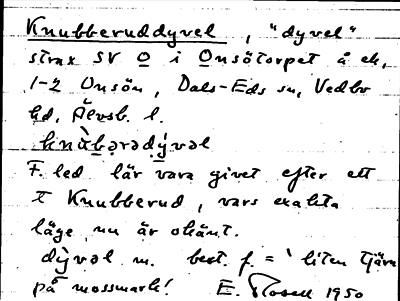 Knubberuddyvel, "dyvel"
strax SV O i Onsötorpet å ek,
1-2 Onsön, Dals-Eds sn, Vedbo
hd, Älvsb. l.
knùbərədẏvəl
F. led lär vara givet efter ett
t Knubberud, vars exakta
läge nu är okänt.
dỳvəl m. best. f. = 'liten tjärn
på mossmark'! E. Rosell 1950